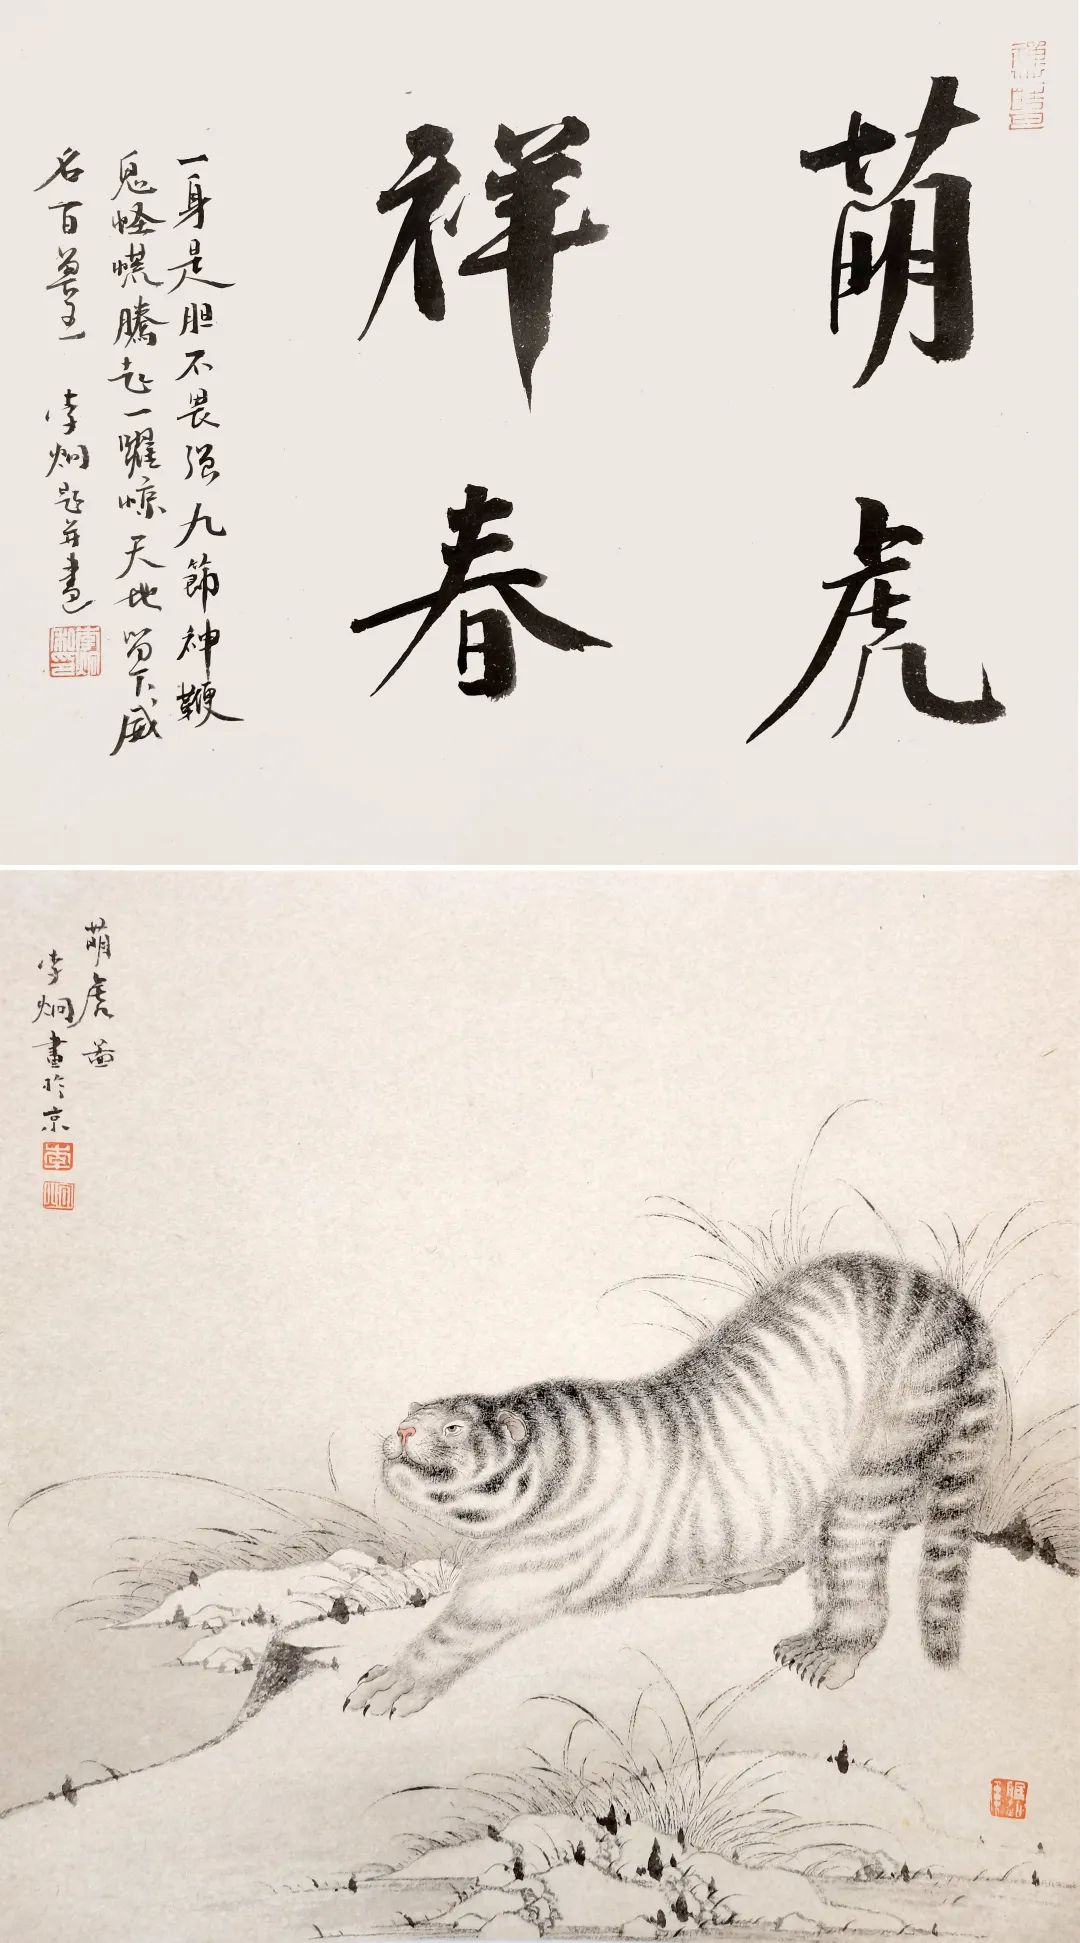 萌虎
祥春
一身是胆不畏强九節神鞭
鬼怪慌騰起一躍惊天地留下威
名百兽王 李炯题并畫
萌虎图
李炯畫於京
李
炯